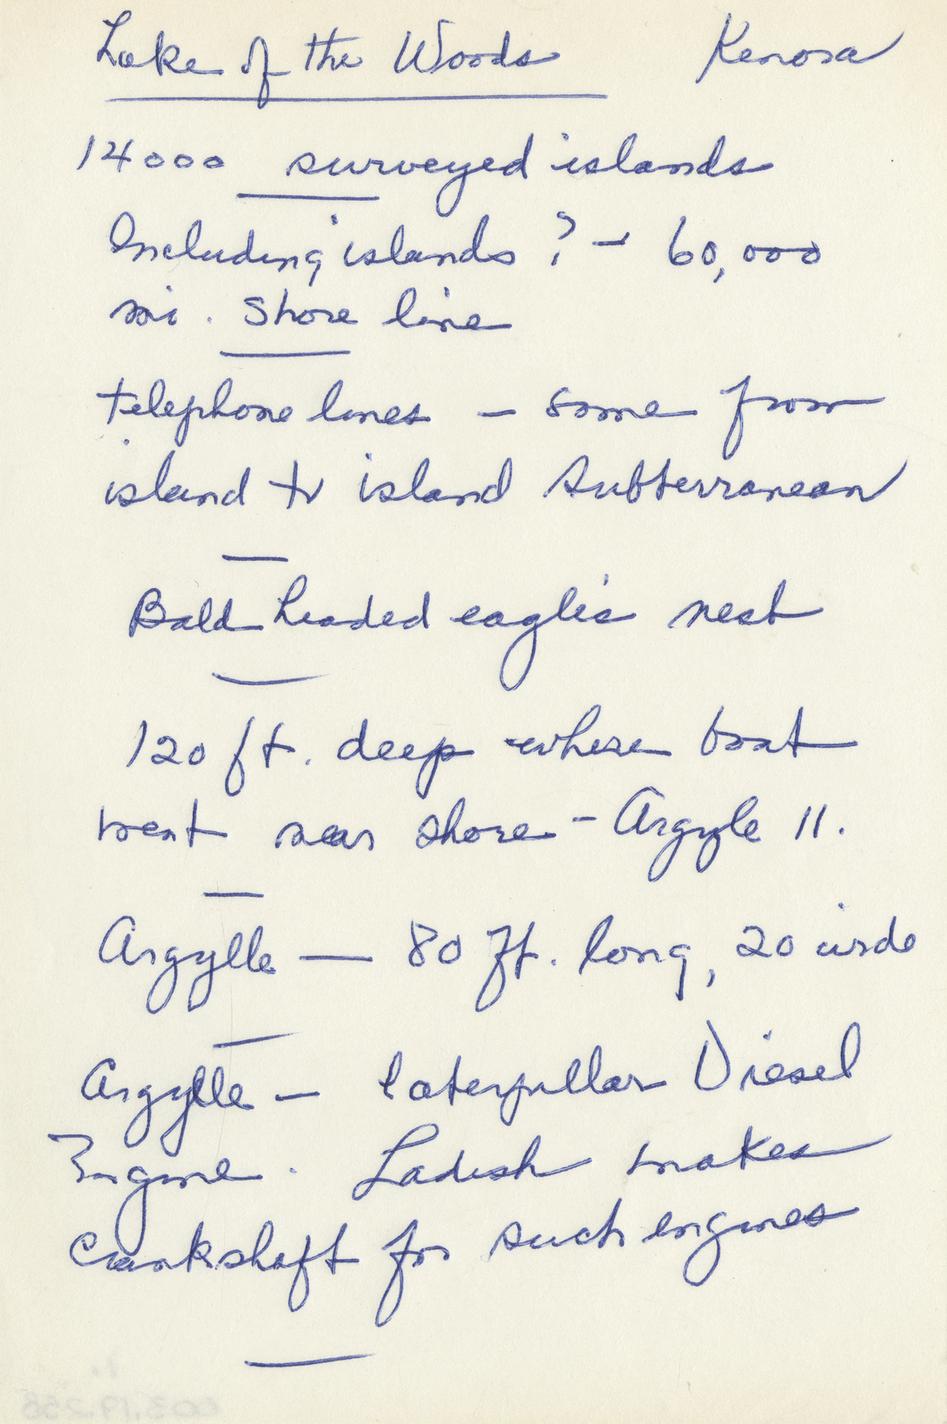 Lake of the Woods Kenora
14000 surveyed islands
Including islands ? - 60,000
mi. Shore line
telephone lines - some from
island to island subterranean
Bald headed eagle's nest
120 ft. deep where boat
went near shore - Argyle 11.
Argylle — 80 ft. long, 20 wide
Argylle — Caterpillar Diesel
Engine. Ladish makes
crankshaft for such engines